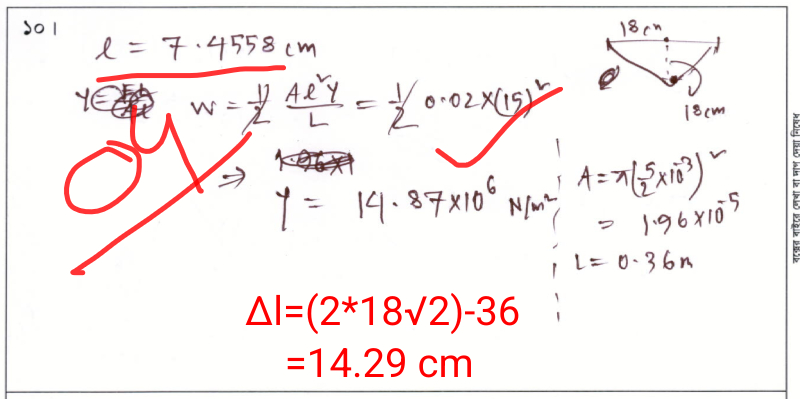 ১০।
l = 7.4558 cm
18 cm
18cm
W = 1/2 Al²Y/L = 1/2 0.02×(15)²
⇒ Y = 14.87×10⁶ N/m²
A = π(5/2 ×10⁻³)²
= 1.96×10⁻⁵
L = 0.36m
Δl=(2*18√2)-36
=14.29 cm
বক্সের বাইরে লেখা বা দাগ দেয়া নিষেধ